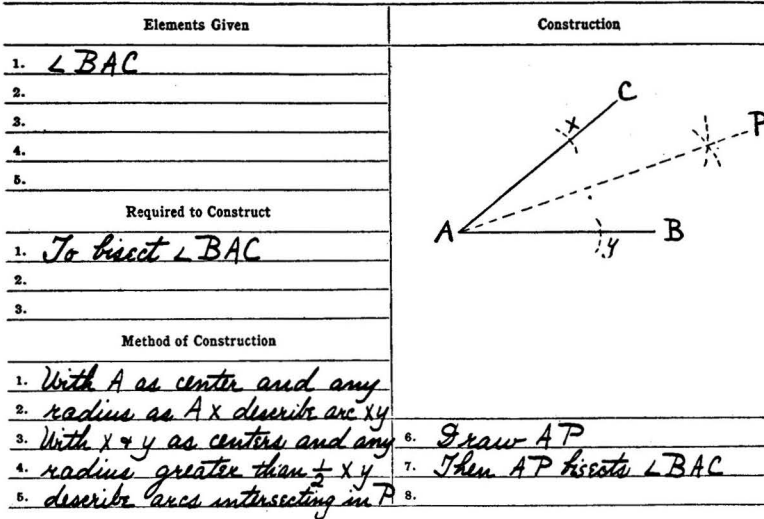 Elements Given
1. ∠BAC
2.
3.
4.
5.
Required to Construct
1. To bisect ∠BAC
2.
3.
Method of Construction
1. With A as center and any
2. radius as Ax describe arc xy
3. With x & y as centers and any
4. radius greater than 1/2 xy
5. describe arcs intersecting in P
Construction
C
x
P
A
B
y
6. Draw AP
7. Then AP bisects ∠BAC
8.